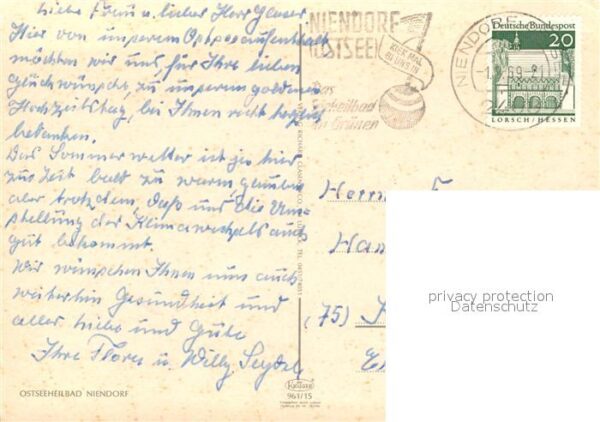 Liebe Frau u. lieber Herr Glaser
Hier von unserem Ostseeaufenthalt
möchten wir uns für Ihre lieben
Glückwünsche, zu unserem goldenen
Hochzeitstag, bei Ihnen recht herzlich
bedanken.
Das Sommerwetter ist ja hier
zur Zeit bald zu warm, glauben
aber trotzdem, daß uns die Um-
stellung des Klimawechsels auch
gut bekommt.
Wir wünschen Ihnen nun auch
weiterhin Gesundheit und
alles Liebe und Gute
Ihre u. Willy Seydel
OSTSEEHEILBAD NIENDORF
NIENDORF
OSTSEE
KIEK MAL
BI UNS IN
Das
Seeheilbad
im Grünen
NIENDORF
69
Deutsche Bundespost
20
LORSCH/HESSEN
Herrn
(75)
961/15
privacy protection
Datenschutz